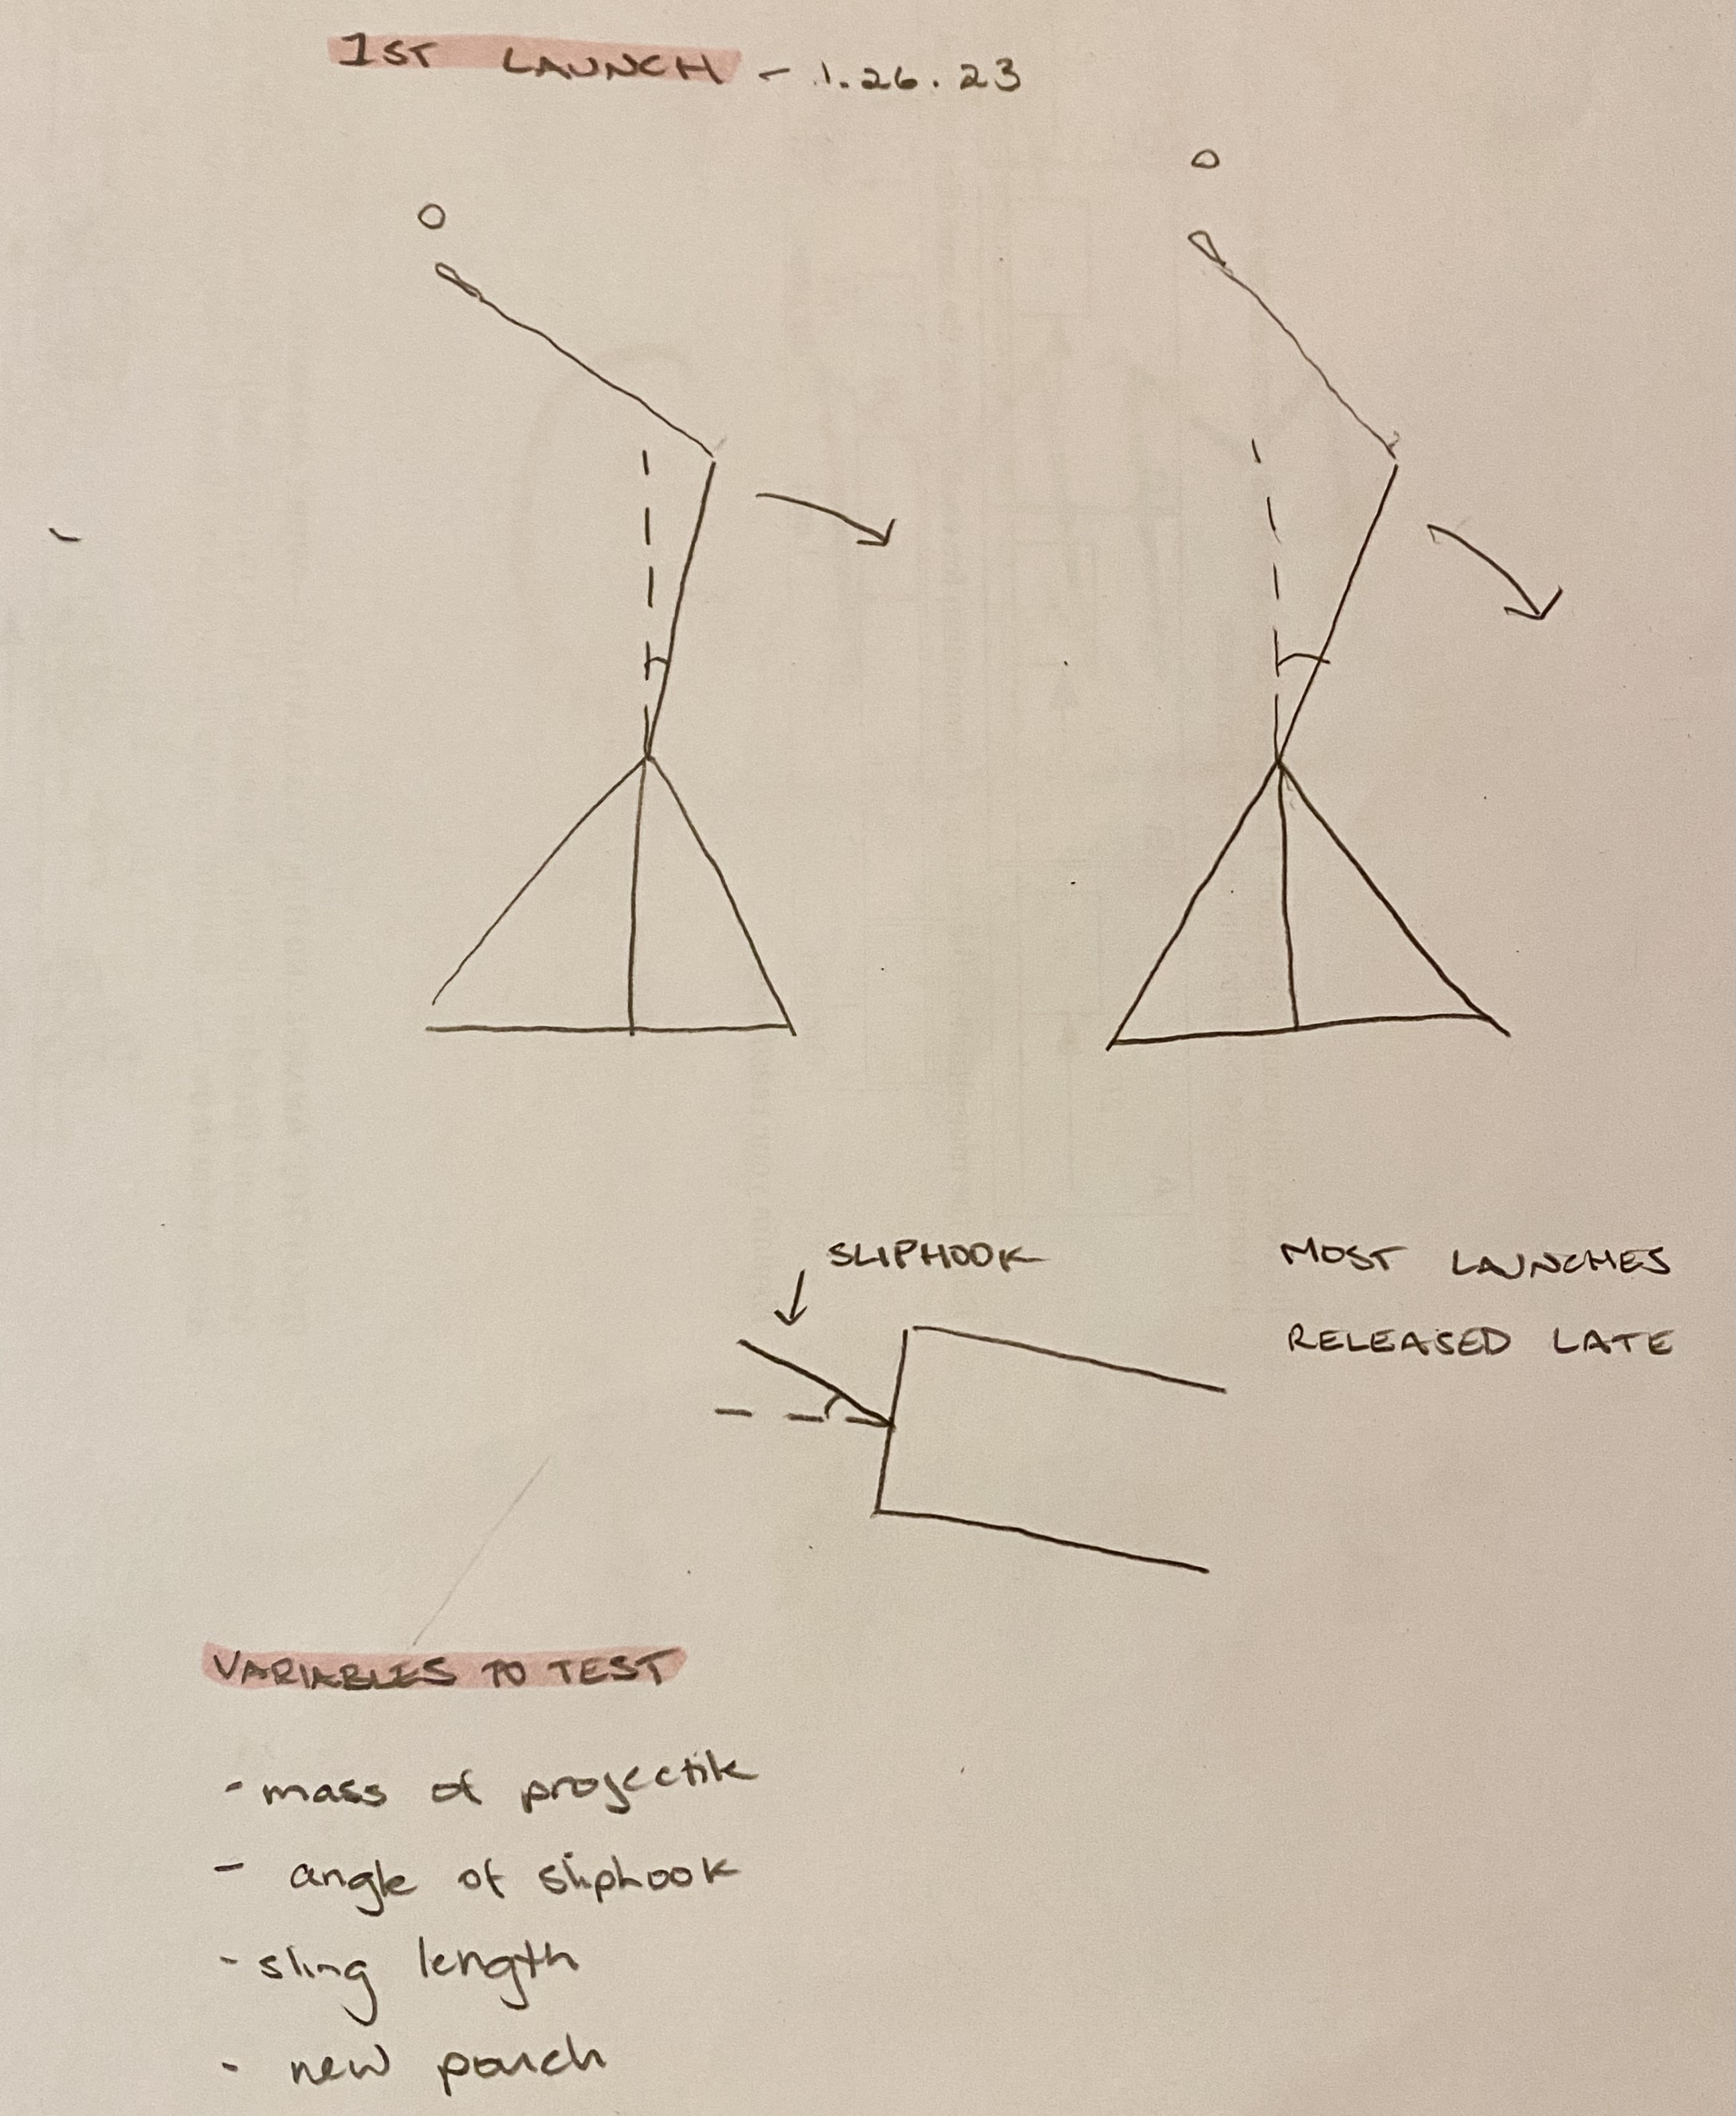 1ST LAUNCH - 1.26.23
SLIPHOOK
MOST LAUNCHES
RELEASED LATE
VARIABLES TO TEST
- mass of projectile
- angle of sliphook
- sling length
- new pouch